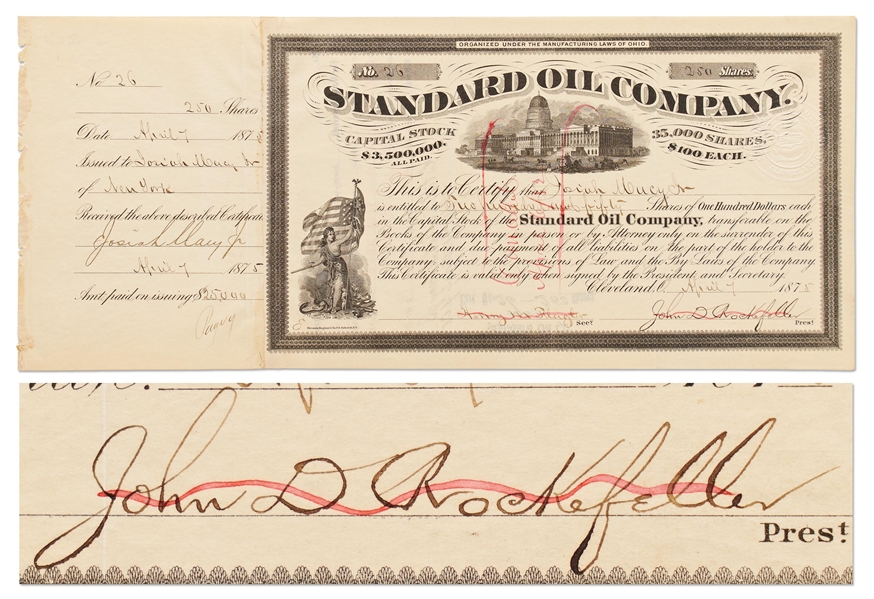 No 26
250 Shares
Date April 7 1875
Issued to Josiah Macy Jr
of New York
Received the above described Certificate
Josiah Macy Jr
April 7 1875
Amt. paid on issuing $25000
ORGANIZED UNDER THE MANUFACTURING LAWS OF OHIO.
No. 26
250 Shares
STANDARD OIL COMPANY.
CAPITAL STOCK
$3,500,000.
ALL PAID.
35,000 SHARES,
$100 EACH.
This is to Certify that Josiah Macy Jr
is entitled to Two hundred and fifty Shares of One Hundred Dollars each
in the Capital Stock of the Standard Oil Company, transferable on the
Books of the Company in person or by Attorney only on the surrender of this
Certificate and due payment of all liabilities on the part of the holder to the
Company, subject to the provisions of Law and the By Laws of the Company.
This Certificate is valid only when signed by the President and Secretary.
Cleveland, O. April 7 1875
Secy.
John D Rockefeller
Prest.
John D Rockefeller
Prest.